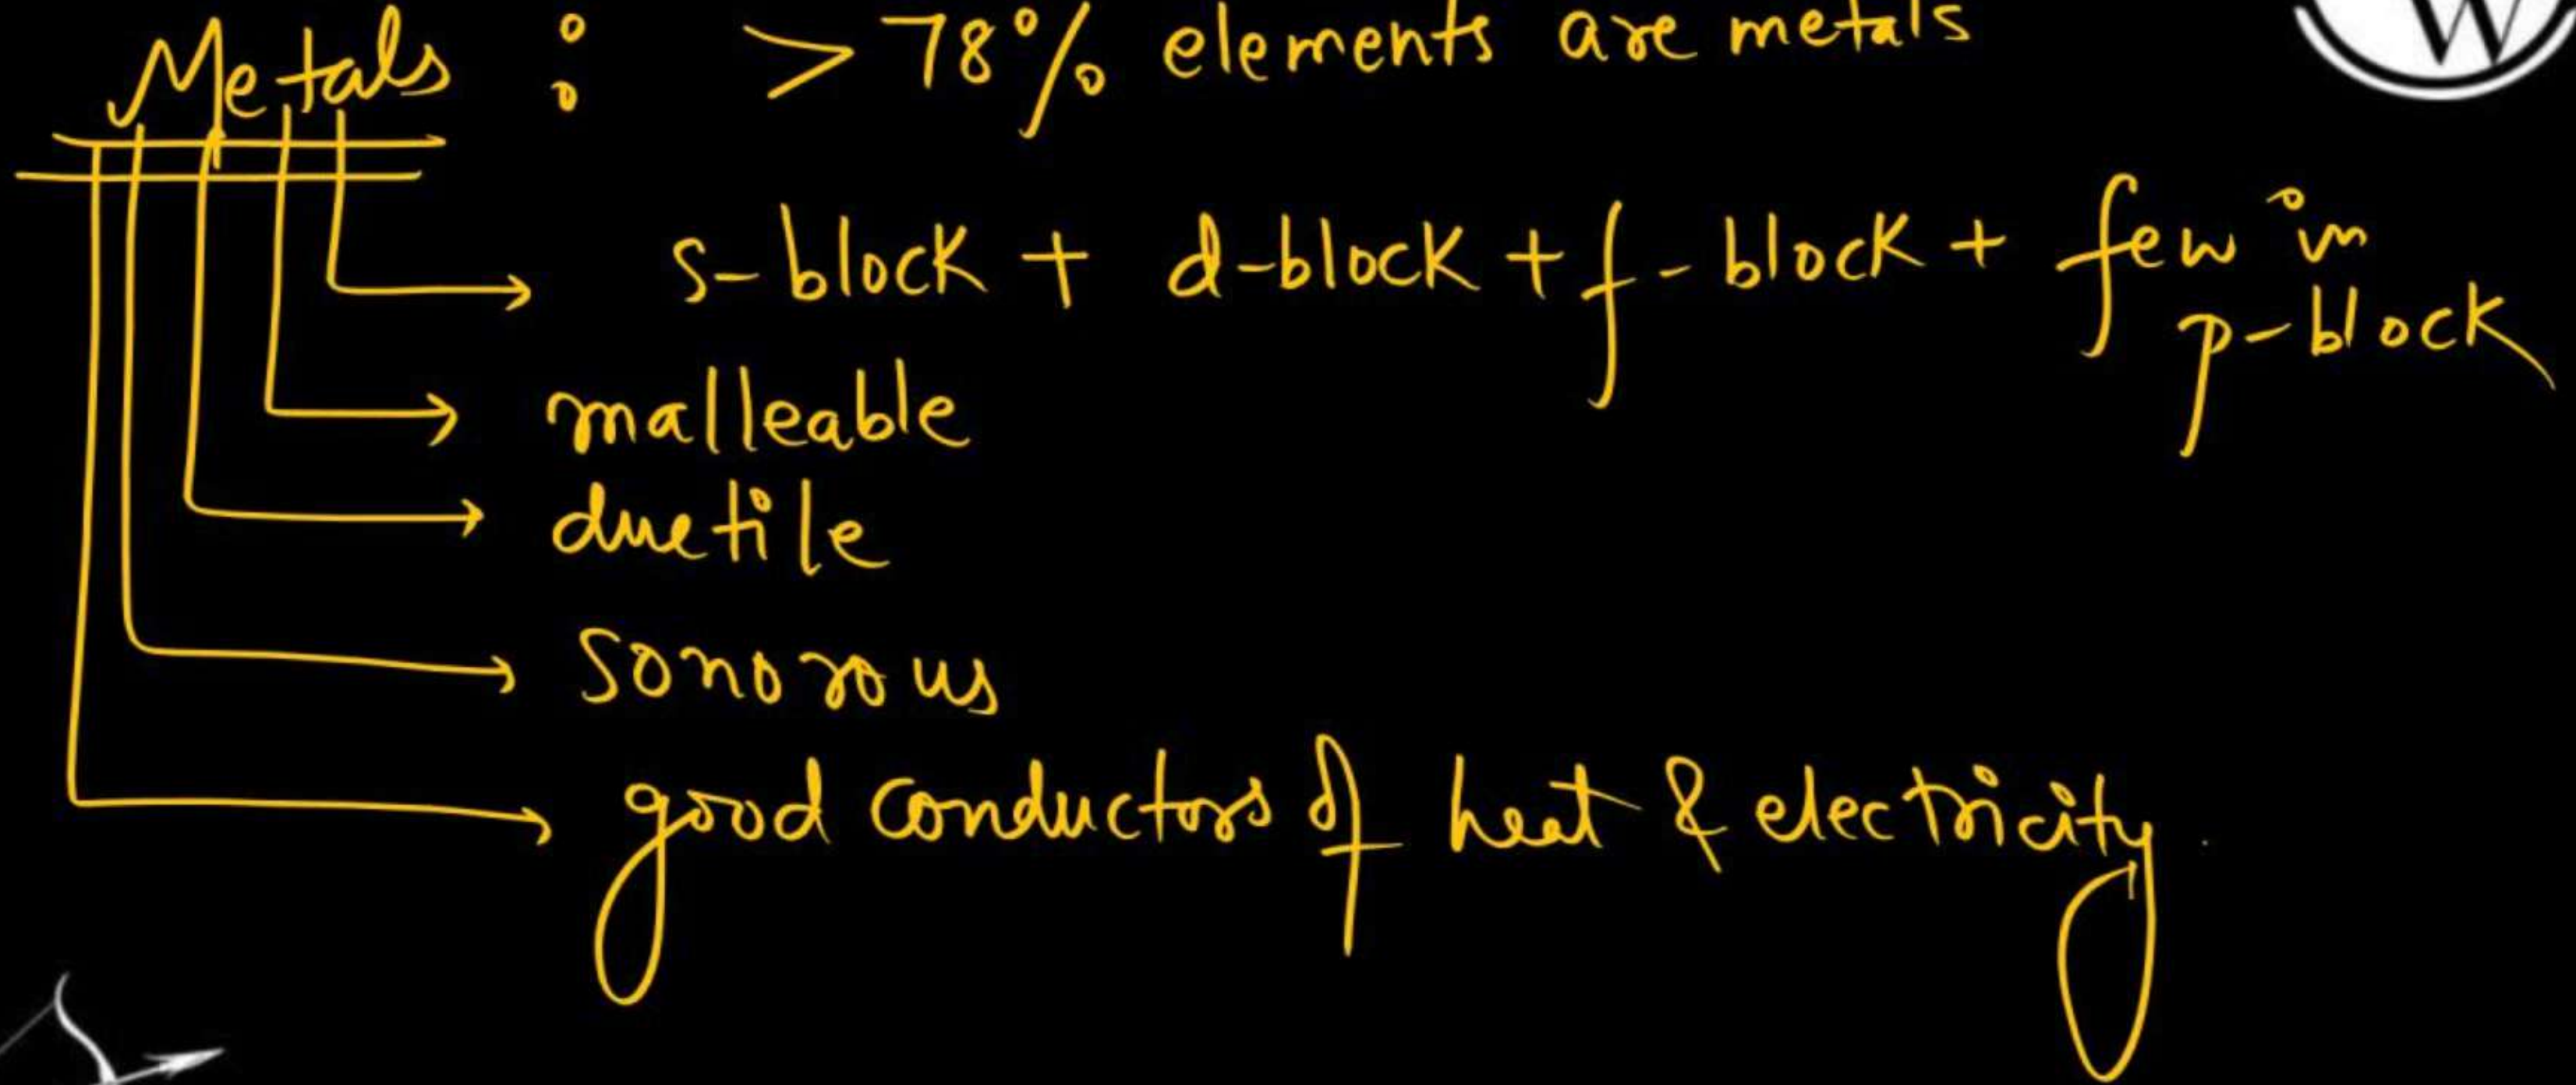 Metals : > 78% elements are metals
s-block + d-block + f-block + few in
p-block
malleable
ductile
sonorous
good conductors of heat & electricity.
W